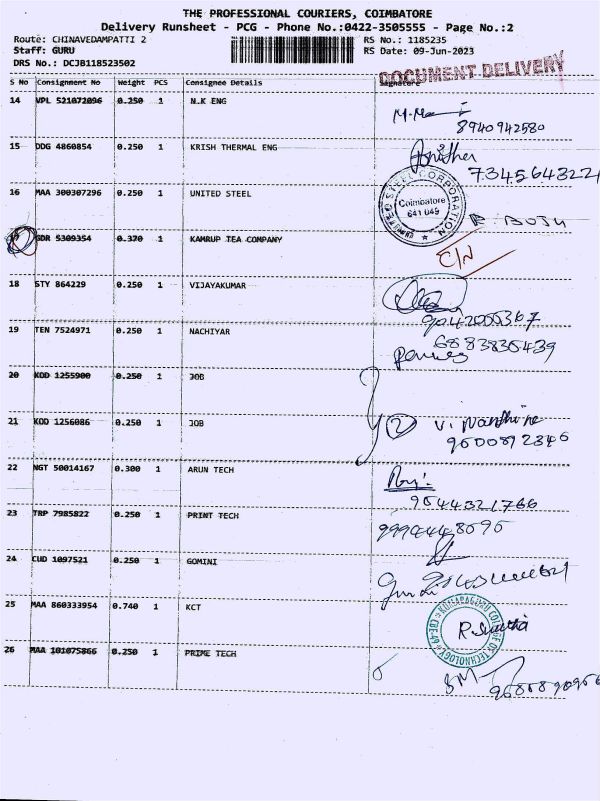 THE PROFESSIONAL COURIERS, COIMBATORE
Delivery Runsheet - PCG - Phone No.:0422-3505555 - Page No.:2
Route: CHINAVEDAMPATTI 2 RS No.: 1185235
Staff: GURU RS Date: 09-Jun-2023
DRS No.: DCJB118523502
DOCUMENT DELIVERY
S No Consignment No Weight PCS Consignee Details Signature
14 VPL 521072096 0.250 1 N.K ENG
8940942580
15 DDG 4860854 0.250 1 KRISH THERMAL ENG
7345643221
16 MAA 300307296 0.250 1 UNITED STEEL
UNITED STEEL CORPORATION
Coimbatore
641 049
17 GDR 5309354 0.370 1 KAMRUP TEA COMPANY
C/N
18 STY 864229 0.250 1 VIJAYAKUMAR
19 TEN 7524971 0.250 1 NACHIYAR
6883835439
20 KDD 1255900 0.250 1 JOB
21 KDD 1256086 0.250 1 JOB
2
22 NGT 50014167 0.300 1 ARUN TECH
23 TRP 7985822 0.250 1 PRINT TECH
24 CUD 1097521 0.250 1 GOMINI
25 MAA 860333954 0.740 1 KCT
KUMARAGURU COLLEGE OF TECHNOLOGY
26 MAA 101075866 0.250 1 PRIME TECH